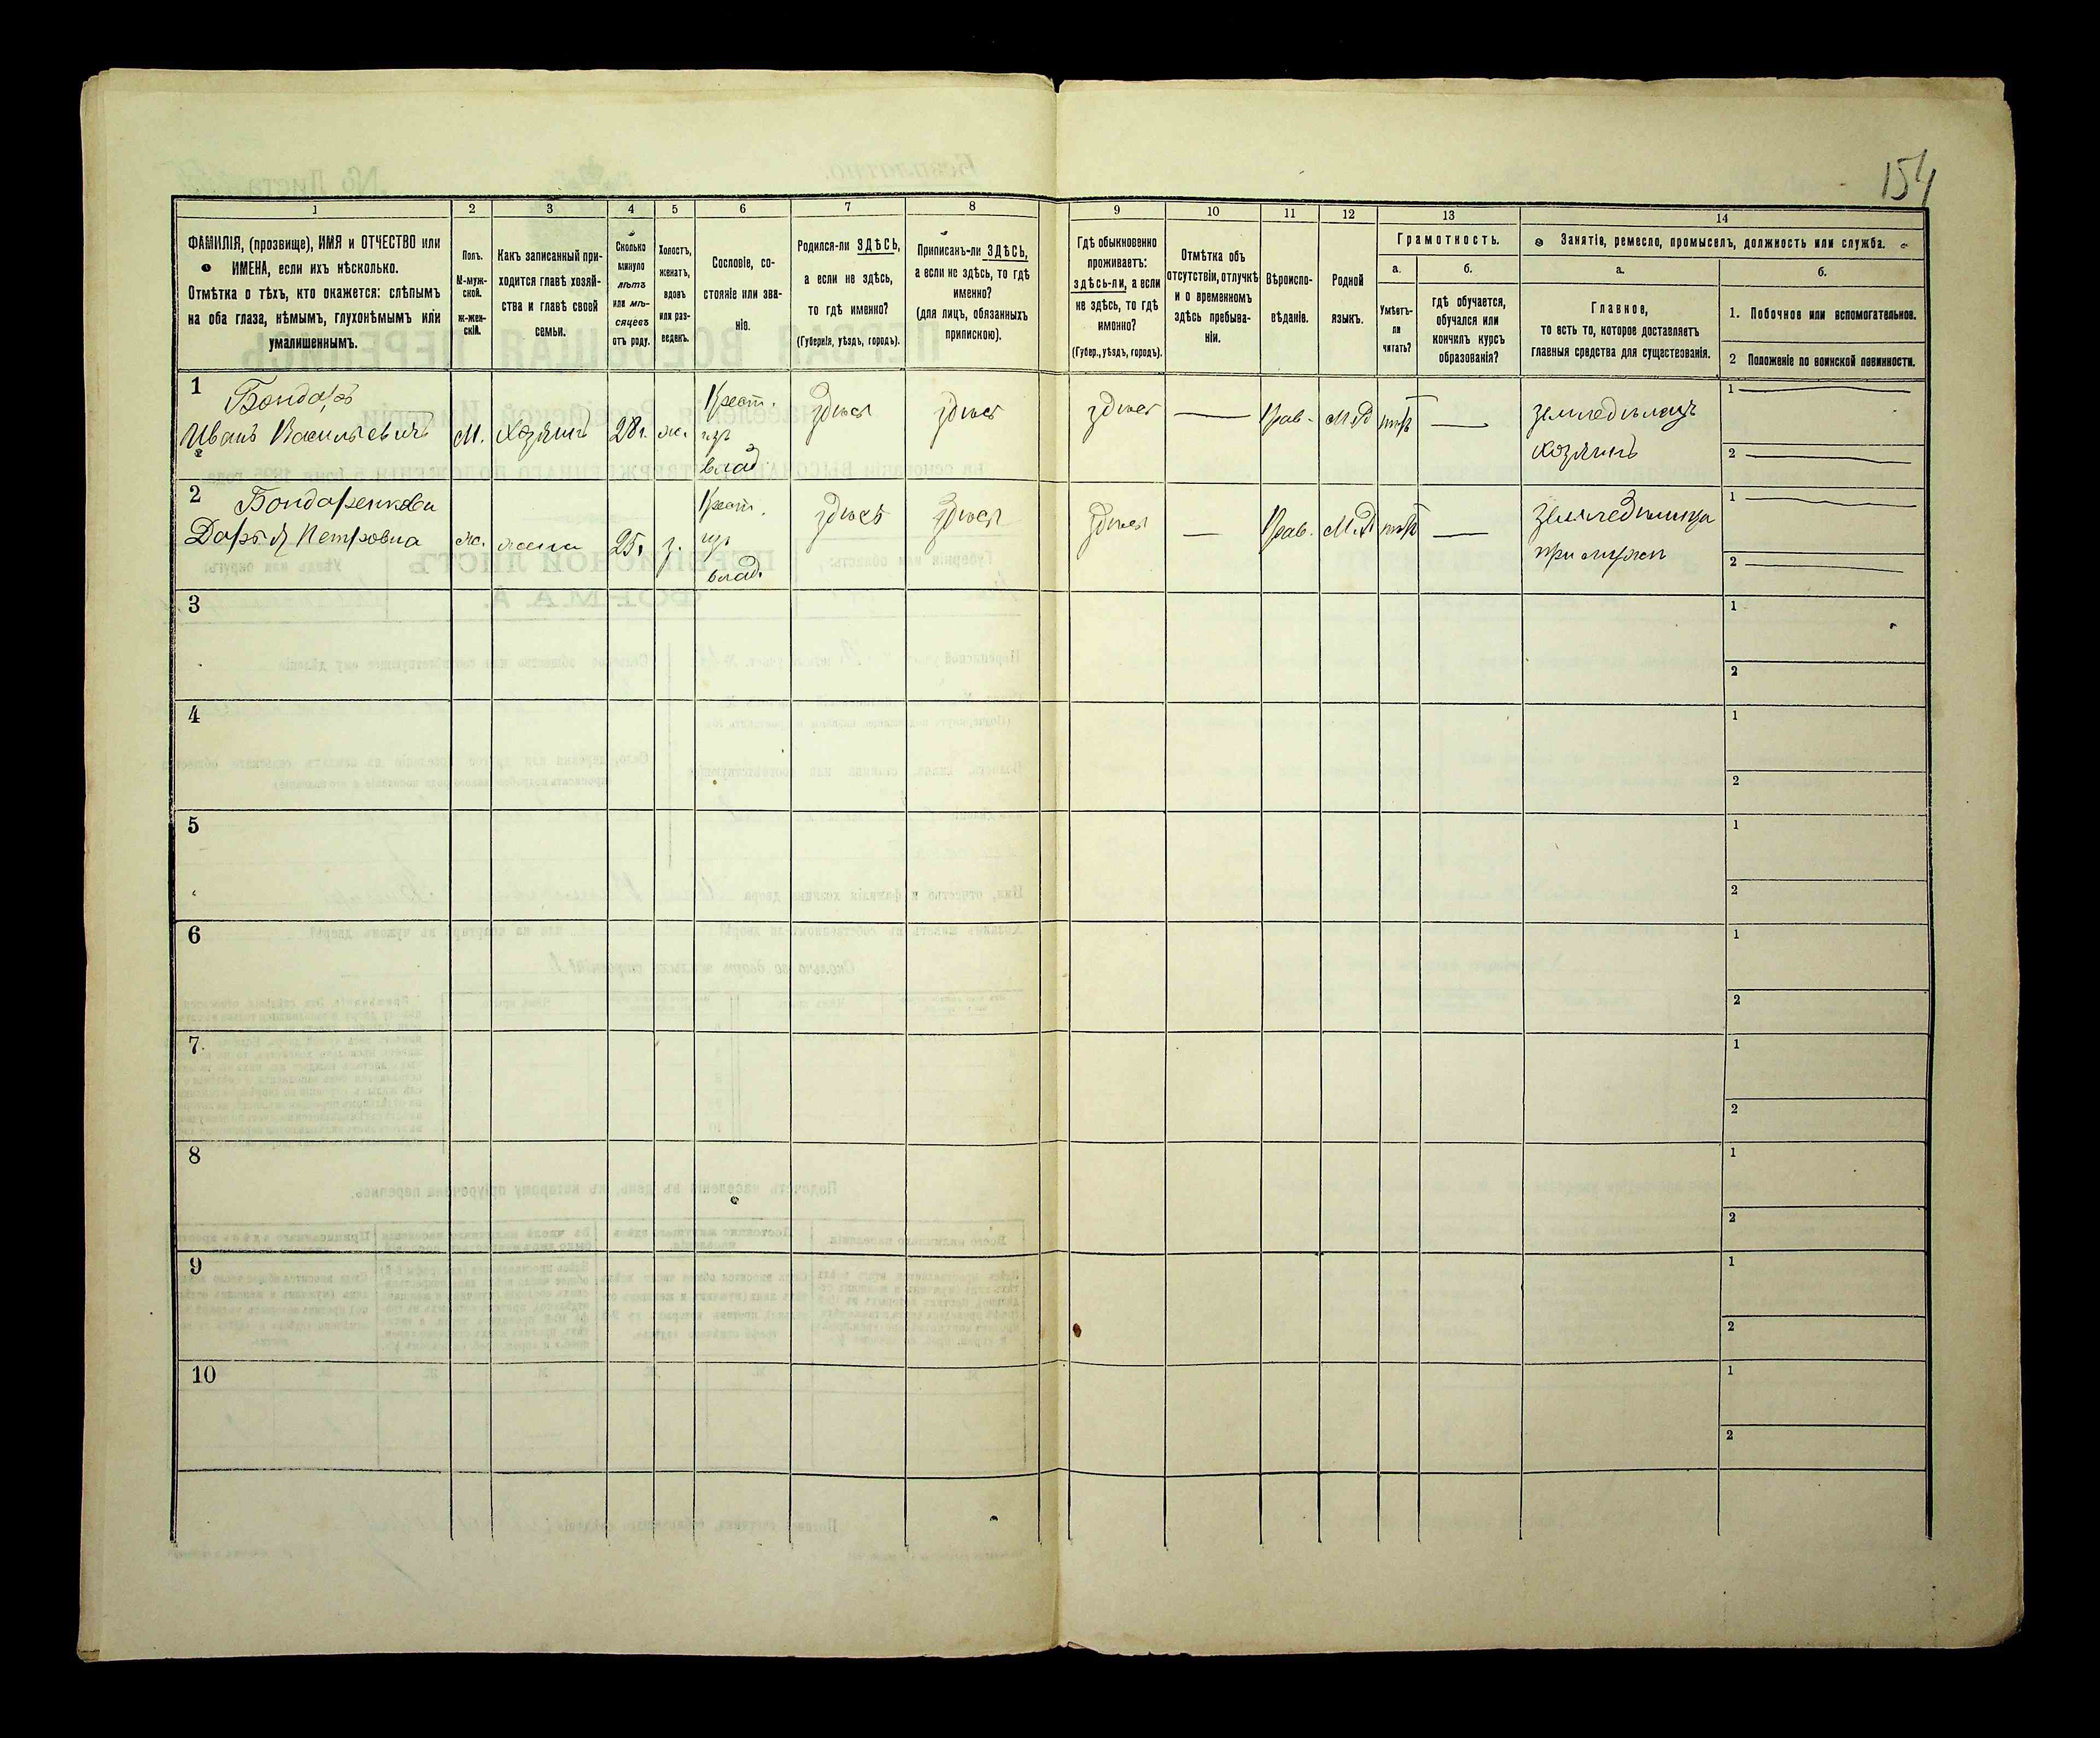 154
1 2 3 4 5 6 7 8 9 10 11 12 13 14
ФАМИЛІЯ, (прозвище), ИМЯ и ОТЧЕСТВО или
ИМЕНА, если ихъ нѣсколько.
Отмѣтка о тѣхъ, кто окажется: слѣпымъ
на оба глаза, нѣмымъ, глухонѣмымъ или
умалишеннымъ.
Полъ.
М-муж-
ской.
Ж-жен-
скій.
Какъ записанный при-
ходится главѣ хозяй-
ства и главѣ своей
семьи.
Сколько
минуло
лѣтъ
или мѣ-
сяцевъ
отъ роду.
Холостъ,
женатъ,
вдовъ
или раз-
веденъ.
Сословіе, со-
стояніе или зва-
ніе.
Родился-ли ЗДѢСЬ,
а если не здѣсь,
то гдѣ именно?
(Губернія, уѣздъ, городъ).
Приписанъ-ли ЗДѢСЬ,
а если не здѣсь, то гдѣ
именно?
(для лицъ, обязанныхъ
припискою).
Гдѣ обыкновенно
проживаетъ:
здѣсь-ли, а если
не здѣсь, то гдѣ
именно?
(Губер., уѣздъ, городъ).
Отмѣтка объ
отсутствіи, отлучкѣ
и о временномъ
здѣсь пребыва-
ніи.
Вѣроиспо-
вѣданіе.
Родной
языкъ.
Грамотность.
а.
Умѣетъ-
ли
читать?
б.
гдѣ обучается,
обучался или
кончилъ курсъ
образованія?
Занятіе, ремесло, промыселъ, должность или служба.
а.
Главное,
то есть то, которое доставляетъ
главныя средства для существованія.
б.
1. Побочное или вспомогательное.
2 Положеніе по воинской повинности.
1 Бондарь
Иванъ Васильевичъ М. Хозяинъ 28 г. ж. Крест. изъ влад. здѣсь здѣсь здѣсь — Прав. М.Р. нѣтъ — земледѣлецъ хозяинъ 1 — 2 —
2 Бондаренкова
Дарья Петровна ж. жена 25 з. Крест. изъ влад. здѣсь здѣсь здѣсь — Прав. М.Р. нѣтъ — земледѣлица при мужѣ 1 — 2 —
3 1 2
4 1 2
5 1 2
6 1 2
7. 1 2
8 1 2
9 1 2
10 1 2